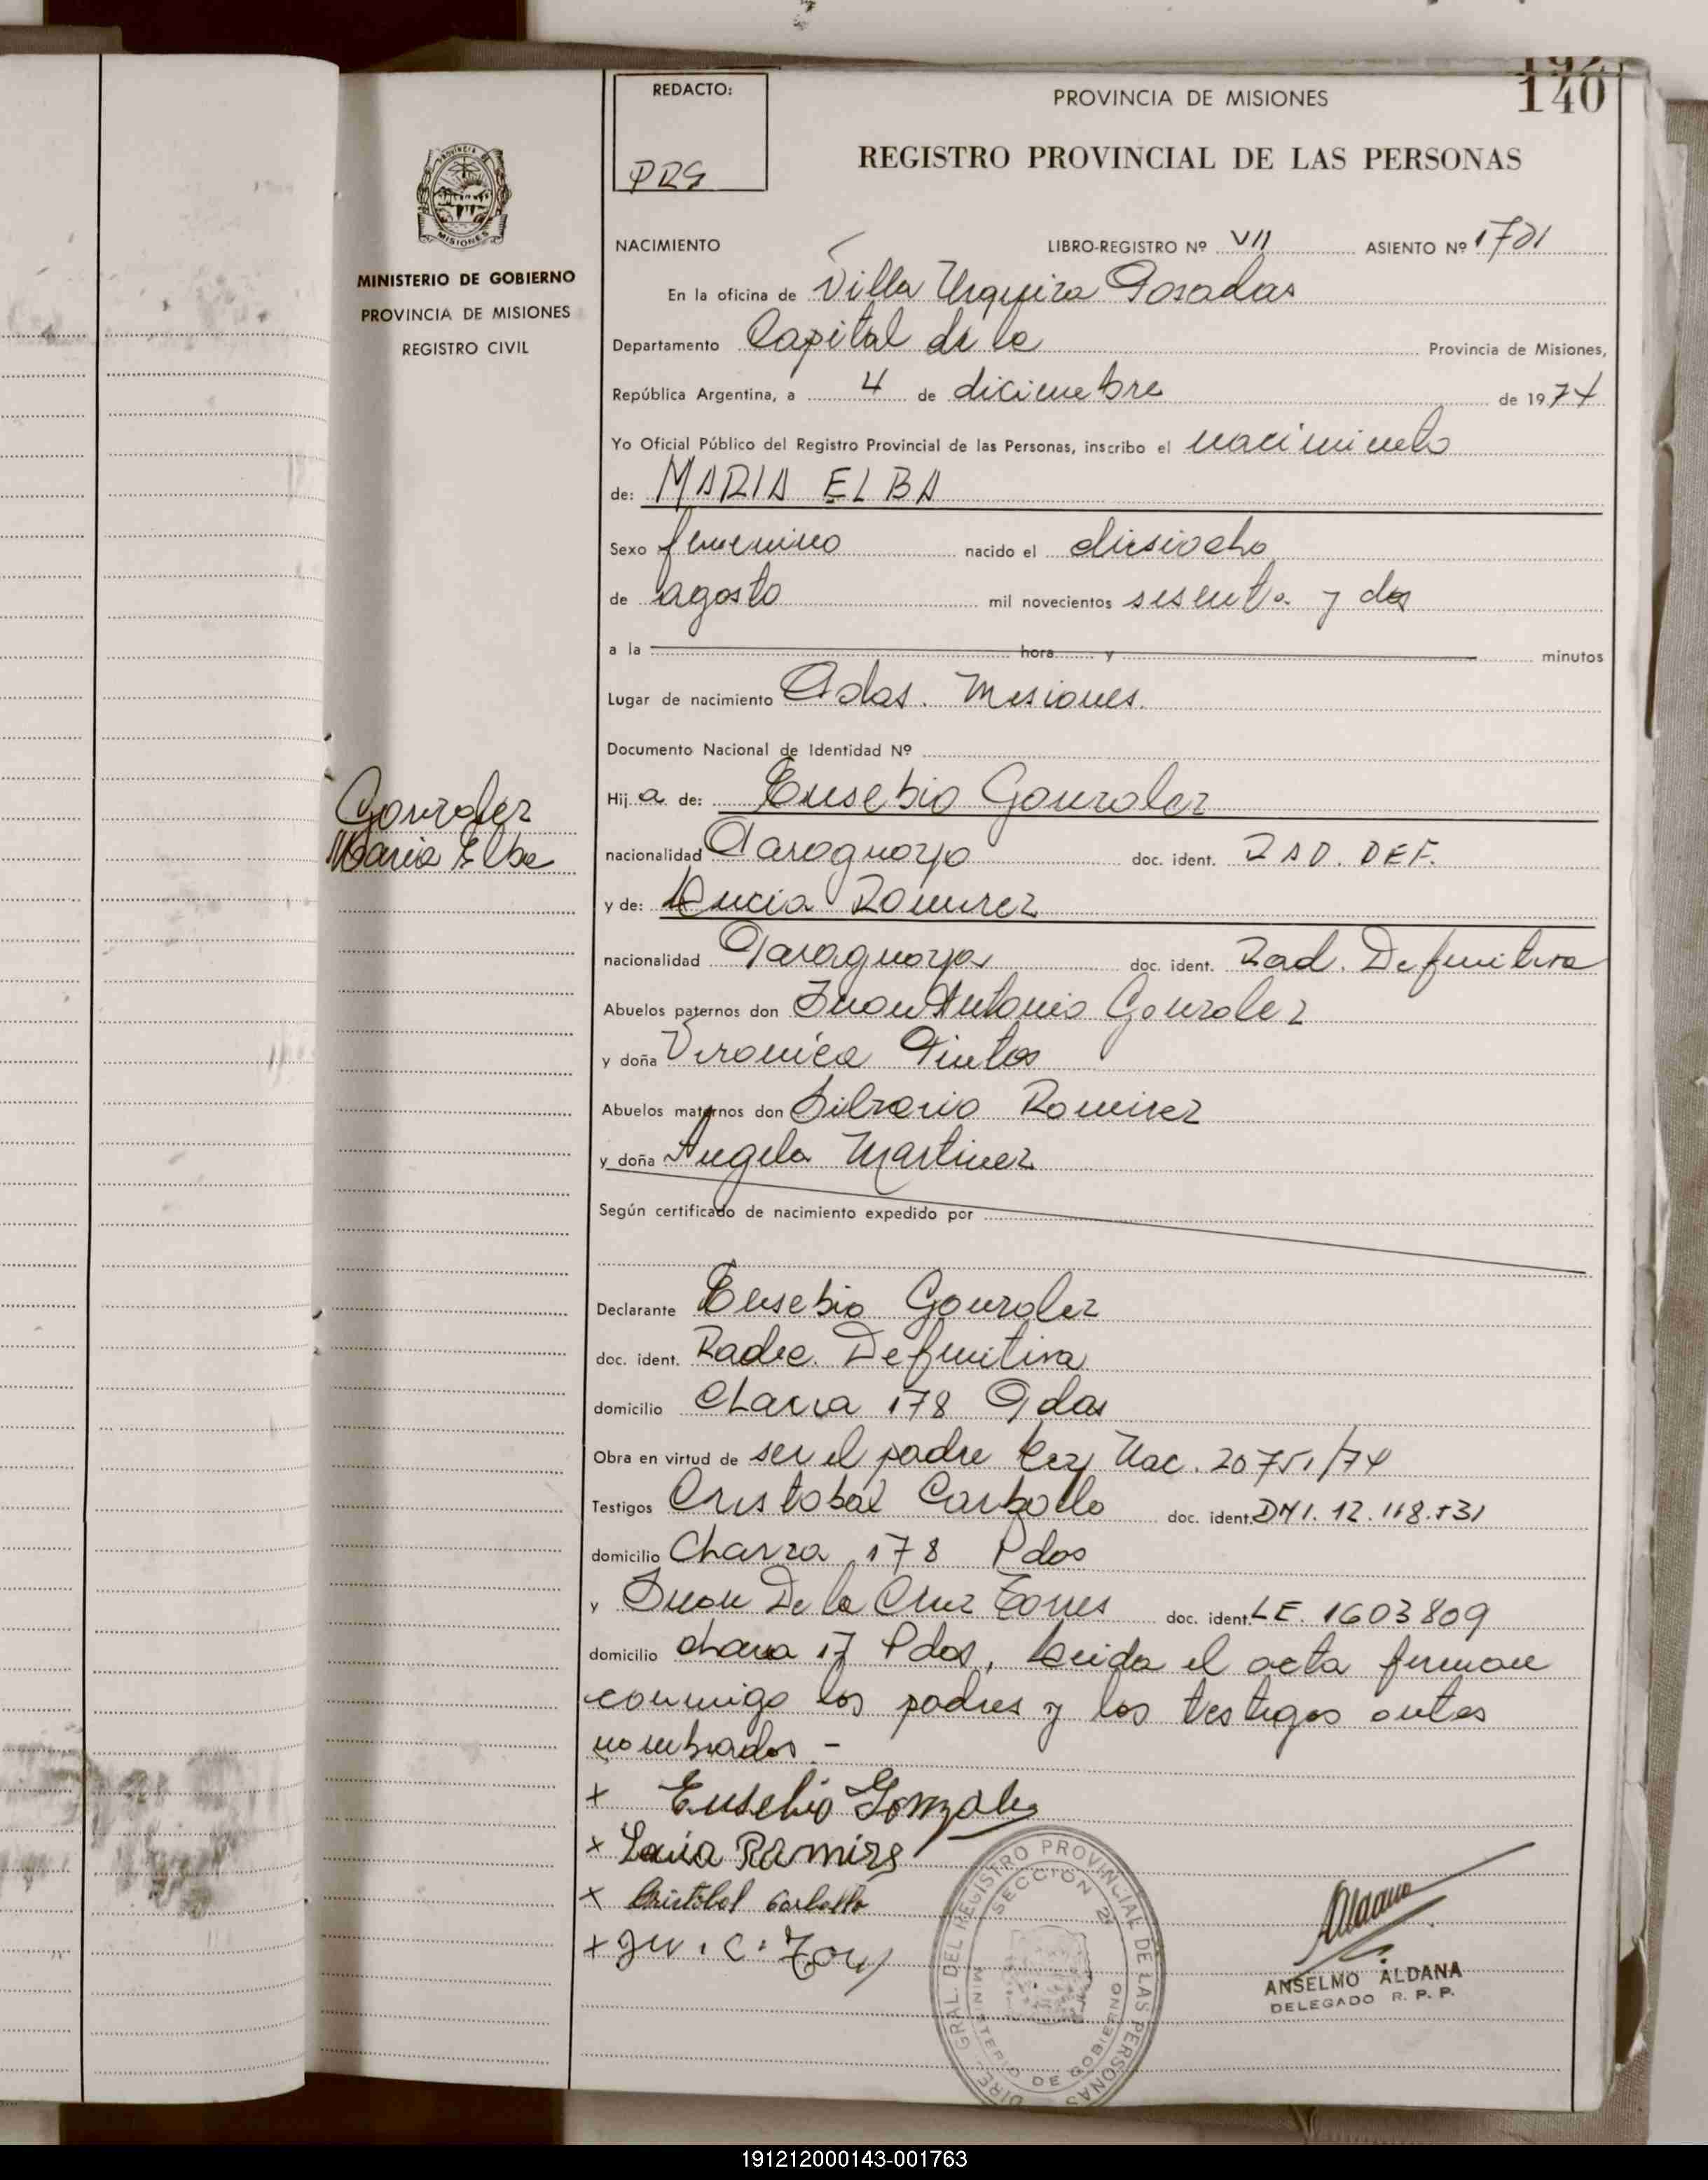 192
140
REDACTO:
PRG
PROVINCIA DE MISIONES
REGISTRO PROVINCIAL DE LAS PERSONAS
PROVINCIA DE
MISIONES
MINISTERIO DE GOBIERNO
PROVINCIA DE MISIONES
REGISTRO CIVIL
NACIMIENTO LIBRO-REGISTRO Nº VII ASIENTO Nº 1701
En la oficina de Villa Urquiza Posadas
Departamento Capital de la Provincia de Misiones,
República Argentina, a 4 de diciembre de 1974
Yo Oficial Público del Registro Provincial de las Personas, inscribo el nacimiento
de: MARIA ELBA
Sexo femenino nacido el diesiocho
de agosto mil novecientos sesenta y dos
a la hora y minutos
Lugar de nacimiento Pdas. Misiones.
Documento Nacional de Identidad Nº
Hija de: Eusebio Gonzalez
Gonzalez
Maria Elba
nacionalidad Paraguayo doc. ident. RAD. DEF.
y de: Lucia Ramirez
nacionalidad Paraguaya doc. ident. Rad. Definitiva
Abuelos paternos don Juan Antonio Gonzalez
y doña Veronica Pintos
Abuelos maternos don Silverio Ramirez
y doña Angela Martinez
Según certificado de nacimiento expedido por
Declarante Eusebio Gonzalez
doc. ident. Radic. Definitiva
domicilio Chacra 178 Pdas
Obra en virtud de ser el padre Ley Nac. 20751/74
Testigos Cristobal Carballo doc. ident. DNI. 12.118.531
domicilio Chacra 178 Pdas
y Juan De la Cruz Torres doc. ident. LE. 1603809
domicilio chacra 17 Pdas, Leida el acta firman
conmigo los padres y los testigos antes
nombrados.-
x Eusebio Gonzalez
x Lucia Ramires
x Cristobal Carballo
x Ju. C.
DIRE. GRAL. DEL REGISTRO PROVINCIAL DE LAS PERSONAS
SECCIÓN 2ª
MINISTERIO DE GOBIERNO
Aldana
ANSELMO ALDANA
DELEGADO R. P. P.
191212000143-001763